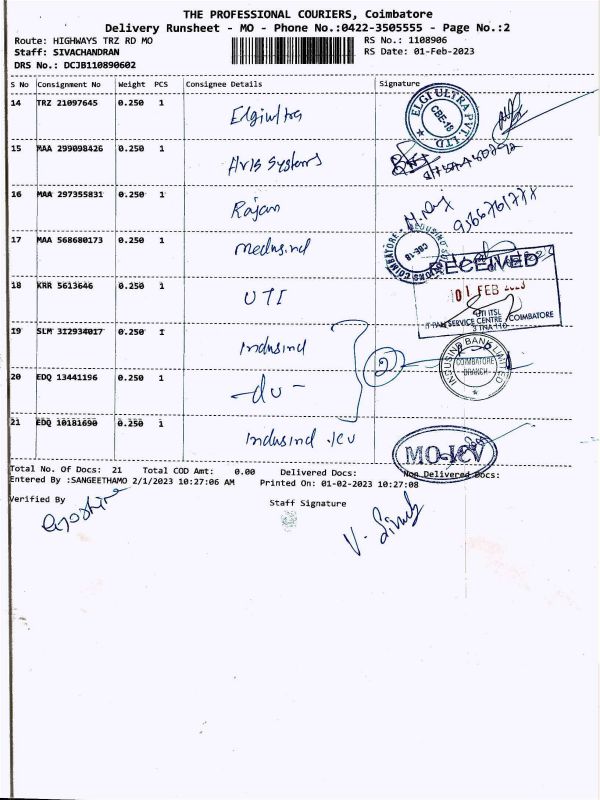 THE PROFESSIONAL COURIERS, Coimbatore
Delivery Runsheet - MO - Phone No.:0422-3505555 - Page No.:2
Route: HIGHWAYS TRZ RD MO
RS No.: 1108906
Staff: SIVACHANDRAN
RS Date: 01-Feb-2023
DRS No.: DCJB110890602
S No Consignment No Weight PCS Consignee Details Signature
14 TRZ 21097645 0.250 1 Elgiultra
ELGI ULTRA PVT. LTD
CBE-18
15 MAA 299098426 0.250 1 Hris Systems
16 MAA 297355831 0.250 1 Rajan
17 MAA 568680173 0.250 1 medusind
COIMBATORE
CBE-18
RECEIVED
18 KRR 5613646 0.250 1 UTI
01 FEB 2023
UTI ITSL
SERVICE CENTRE COIMBATORE
19 SLM 312934017 0.250 1 Indusind
2
INDUSIND BANK LIMITED
COIMBATORE
BRANCH
20 EDQ 13441196 0.250 1 -du-
21 EDQ 10181690 0.250 1 Indusind .icu
MO-ICV
Total No. Of Docs: 21 Total COD Amt: 0.00 Delivered Docs: Non Delivered Docs:
Entered By :SANGEETHAMO 2/1/2023 10:27:06 AM Printed On: 01-02-2023 10:27:08
Verified By
Staff Signature